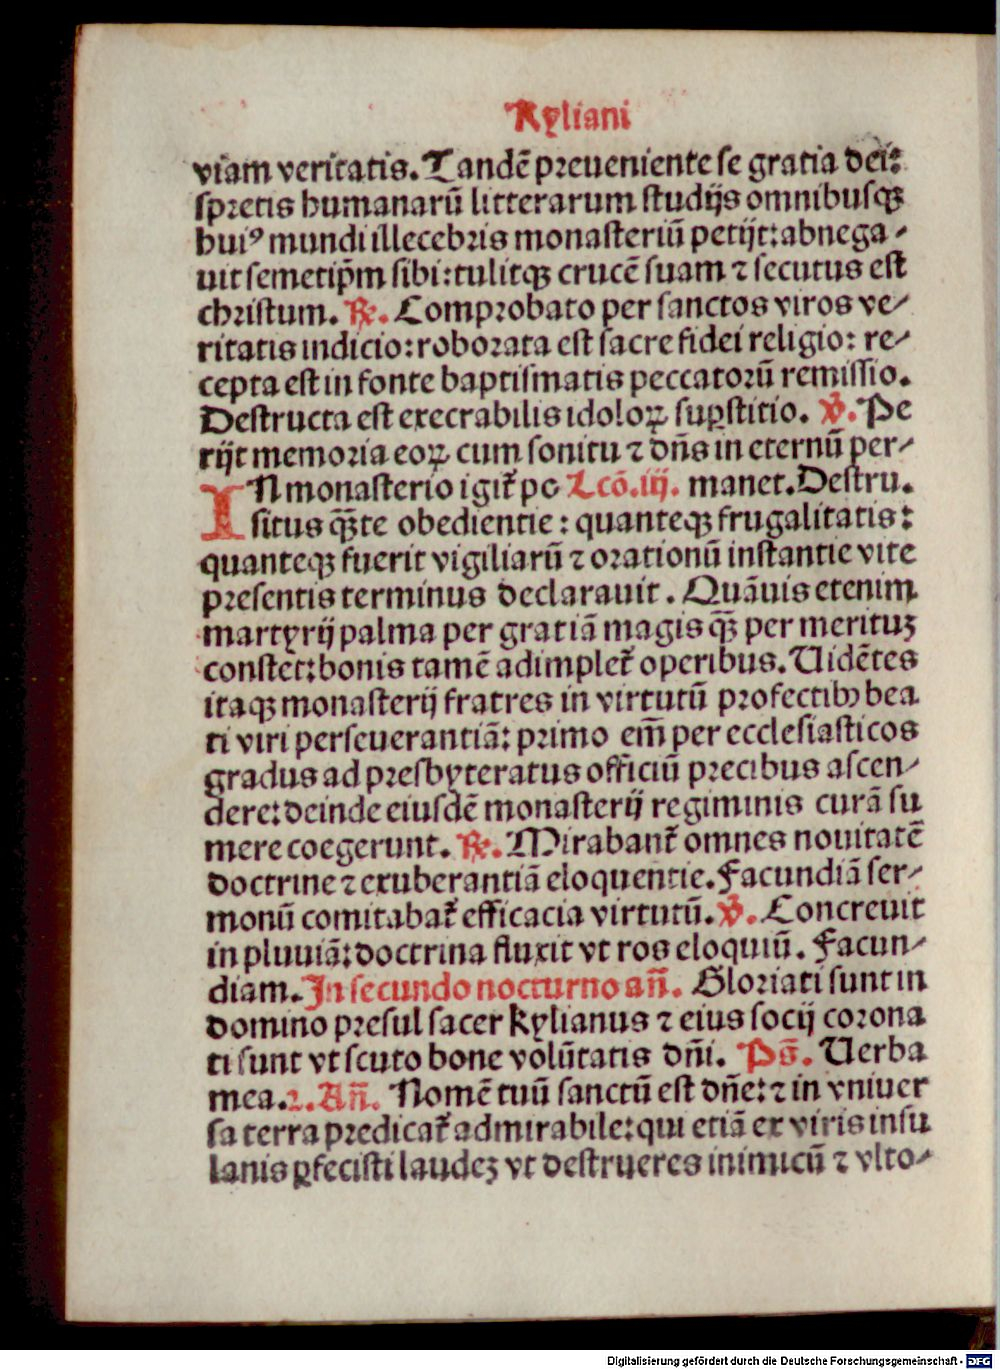 Kyliani
viam veritatis. Tandē preueniente se gratia dei:
spretis humanarū litterarum studijs omnibusqꝫ
huiꝰ mundi illecebris monasteriū petijt: abnega-
uit semetip̄m sibi: tulitqꝫ crucē suam ⁊ secutus est
christum. ℞. Comprobato per sanctos viros ve-
ritatis indicio: roborata est sacre fidei religio: re-
cepta est in fonte baptismatis peccatorū remissio.
Destructa est execrabilis idoloꝝ suꝑstitio. ℣. Pe
rijt memoria eoꝝ cum sonitu ⁊ dn̄s in eternū per-
IN monasterio igit᷑ po Lcō. iij. manet. Destru.
situs qͣꝫte obedientie: quanteqꝫ frugalitatis:
quanteqꝫ fuerit vigiliarū ⁊ orationū instantie vite
presentis terminus declarauit. Quāuis etenim
martyrij palma per gratiā magis qͣꝫ per merituꝫ
constet: bonis tamē adimplet᷑ operibus. Uidētes
itaqꝫ monasterij fratres in virtutū profectibꝰ bea
ti viri perseuerantiā: primo em̄ per ecclesiasticos
gradus ad presbyteratus officiū precibus ascen-
dere: deinde eiusdē monasterij regiminis curā su
mere coegerunt. ℞. Mirabant᷑ omnes nouitatē
doctrine ⁊ exuberantiā eloquentie. Facundiā ser-
monū comitabat᷑ efficacia virtutū. ℣. Concreuit
in pluuiā: doctrina fluxit vt ros eloquiū. Facun-
diam. In secundo nocturno an̄. Gloriati sunt in
domino presul sacer kylianus ⁊ eius socij corona
ti sunt vt scuto bone volūtatis dn̄i. Ps̄. Uerba
mea. 2. An̄. Nomē tuū sanctū est dn̄e: ⁊ in vniuer
sa terra predicat᷑ admirabile: qui etiā ex viris insu
lanis ꝑfecisti laudeꝫ vt destrueres inimicū ⁊ vlto-
Digitalisierung gefördert durch die Deutsche Forschungsgemeinschaft - DFG